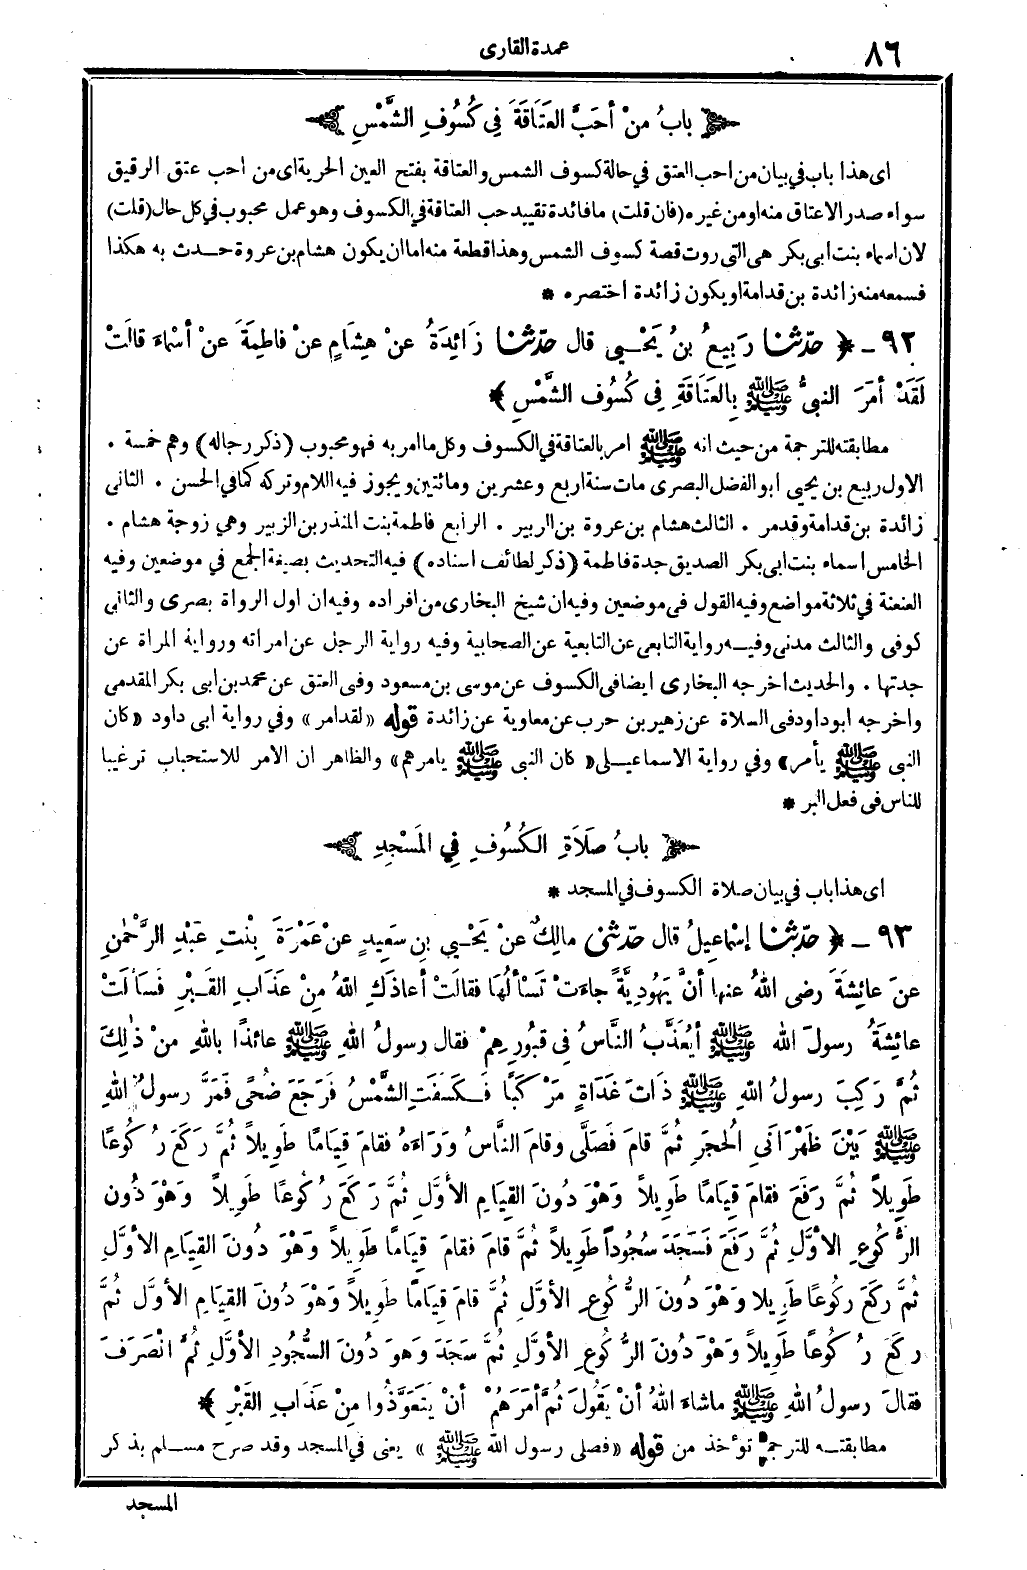 ٨٦
عمدة القارى
باب من أَحَبَّ العَتَاقَةَ فِي كُسُوفِ الشَّمْسِ
اى هذا باب فى بيان من احب العتق فى حالة كسوف الشمس والعتاقة بفتح العين الحرية اى من احب عتق الرقيق
سواء صدر الاعتاق منه او من غيره (فان قلت) ما فائدة تقييد حب العتاقة في الكسوف وهو عمل محبوب في كل حال (قلت)
لان اسماء بنت ابى بكر هى التى روت قصة كسوف الشمس وهذا قطعة منه اما ان يكون هشام بن عروة حدث به هكذا
فسمعه منه زائدة بن قدامة او يكون زائدة اختصره *
٩٢ - ﴿ حدّثنا رَبِيعُ بنُ يَحْـيى قال حدّثنا زَائِدَةُ عنْ هِشَامٍ عنْ فاطِمَةَ عنْ أسْماءَ قالَتْ
لَقَدْ أمَرَ النبىُّ ﷺ بِالعَتَاقَةِ فِى كُسُوفِ الشَّمْسِ ﴾
مطابقته للترجمة من حيث انه ﷺ امر بالعتاقة في الكسوف وكل ما امر به فهو محبوب (ذكر رجاله) وهم خمسة .
الاول ربيع بن يحيى ابو الفضل البصرى مات سنة اربع وعشرين ومائتين ويجوز فيه اللام وتركه كما في الحسن . الثانى
زائدة بن قدامة وقد مر . الثالث هشام بن عروة بن الزبير . الرابع فاطمة بنت المنذر بن الزبير وهي زوجة هشام .
الخامس اسماء بنت ابى بكر الصديق جدة فاطمة (ذكر لطائف اسناده) فيه التحديث بصيغة الجمع في موضعين وفيه
العنعنة في ثلاثة مواضع وفيه القول فى موضعين وفيه ان شيخ البخارى من افراده وفيه ان اول الرواة بصرى والثانى
كوفى والثالث مدنى وفيـه رواية التابعى عن التابعية عن الصحابية وفيه رواية الرجل عن امراته ورواية المراة عن
جدتها . والحديث اخرجه البخارى ايضا فى الكسوف عن موسى بن مسعود وفى العتق عن محمد بن ابى بكر المقدمى
واخرجه ابو داود فى الصلاة عن زهير بن حرب عن معاوية عن زائدة قوله «لقد امر» وفي رواية ابى داود «كان
النبى ﷺ يأمر» وفي رواية الاسماعيـلى «كان النبى ﷺ يامرهم» والظاهر ان الامر للاستحباب ترغيبا
للناس فى فعل البر *
بابُ صَلاَةِ الكُسُوفِ فِي المَسْجِدِ
اى هذا باب في بيان صلاة الكسوف في المسجد *
٩٣ - ﴿ حدّثنا إسْماعِيلُ قال حدّثنى مالِكٌ عنْ يَحْـيى بنِ سَعِيدٍ عنْ عَمْرَةَ بِنْتِ عَبْدِ الرَّحْمٰنِ
عنَ عائِشَةَ رضى اللهُ عنها أنَّ يَهُودِيَّةً جاءَتْ تَسْألُهَا فقالَتْ أعاذَكِ اللهُ مِنْ عَذَابِ القَبْرِ فَسَألَتْ
عائِشَةُ رسولَ الله ﷺ أيُعَذَّبُ النَّاسُ فِى قُبُورِهِمْ فقال رسولُ اللهِ ﷺ عائِذًا باللهِ مِنْ ذٰلِكَ
ثُمَّ رَكِبَ رسولُ اللهِ ﷺ ذَاتَ غَدَاةٍ مَرْكَبًا فَـكَسَفَتِ الشَّمْسُ فَرَجَعَ ضُحًى فَمَرَّ رسولُ اللهِ
ﷺ بَيْنَ ظَهْرَانَىِ الحُجَرِ ثُمَّ قامَ فَصَلَّى وقامَ النَّاسُ وَرَاءَهُ فقامَ قِيَامًا طَوِيلاً ثُمَّ رَكَعَ رُكُوعًا
طَوِيلاً ثُمَّ رَفَعَ فقامَ قِيَامًا طَوِيلاً وَهْوَ دُونَ القِيَامِ الأوَّلِ ثُمَّ رَكَعَ رُكُوعًا طَوِيلاً وَهْوَ دُونَ
الرُّكُوعِ الأوَّلِ ثُمَّ رَفَعَ فَسَجَدَ سُجُوداً طَوِيلاً ثُمَّ قامَ فقامَ قِيَاماً طَوِيلاً وَهْوَ دُونَ القِيَامِ الأوَّلِ
ثُمَّ ركَعَ ركُوعًا طَوِيلا وَهْوَ دُونَ الرُّكُوعِ الأوَّلِ ثُمَّ قامَ قِيَاماً طَوِيلاً وَهْوَ دُونَ القِيَامِ الأوَّلِ ثُمَّ
ركَعَ رُكُوعًا طَوِيلاً وَهْوَ دُونَ الرُّكُوعِ الأوَّلِ ثُمَّ سَجَدَ وَهوَ دُونَ السُّجُودِ الأوَّلِ ثُمَّ انْصَرَفَ
فقالَ رسولُ اللهِ ﷺ ماشاءَ اللهُ أنْ يَقُولَ ثُمَّ أمَرَهُمْ أنْ يَتَعَوَّذُوا مِنْ عَذَابِ القَبْرِ ﴾
مطابقتـه للترجمة تؤخذ من قوله «فصلى رسول الله ﷺ» يعنى في المسجد وقد صرح مسـلم بذكر
المسجد